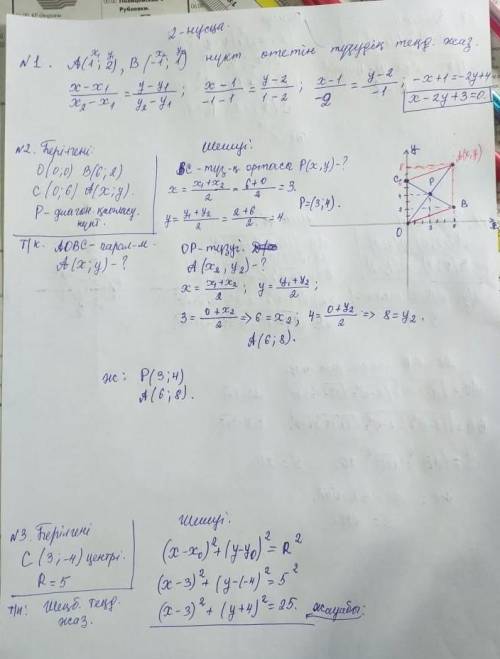 2-нұсқа.
№1. A(1; 2), B(-1; 1) нүкт. өтетін түзудің теңд. жаз.
x₁ y₁ x₂ y₂
(x-x₁)/(x₂-x₁) = (y-y₁)/(y₂-y₁); (x-1)/(-1-1) = (y-2)/(1-2); (x-1)/(-2) = (y-2)/(-1); -x+1=-2y+4
x-2y+3=0.
№2. Берілгені
O(0;0) B(6;2)
C(0;6) A(x;y).
P-диагон. қиылысу
нүкт.
Т/к. AOBC-парал-м.
A(x;y)-?
Шешуі
BC-түз-ң ортасы P(x,y)-?
x=(x₁+x₂)/2=(6+0)/2=3.
y=(y₁+y₂)/2=(2+6)/2=4.
P=(3;4).
OP-түзуі
A(x₂,y₂)-?
x=(x₁+x₂)/2; y=(y₁+y₂)/2;
3=(0+x₂)/2=>6=x₂; 4=(0+y₂)/2=>8=y₂.
A(6;8).
y
A(x,y)
C
P
B
O
x
ж: P(3;4)
A(6;8).
№3. Берілгені
C(3;-4) центрі.
R=5
Т/к: Шеңб. теңд.
жаз.
Шешуі.
(x-x₀)²+(y-y₀)²=R²
(x-3)²+(y-(-4)²=5²
(x-3)²+(y+4)²=25. жауабы: